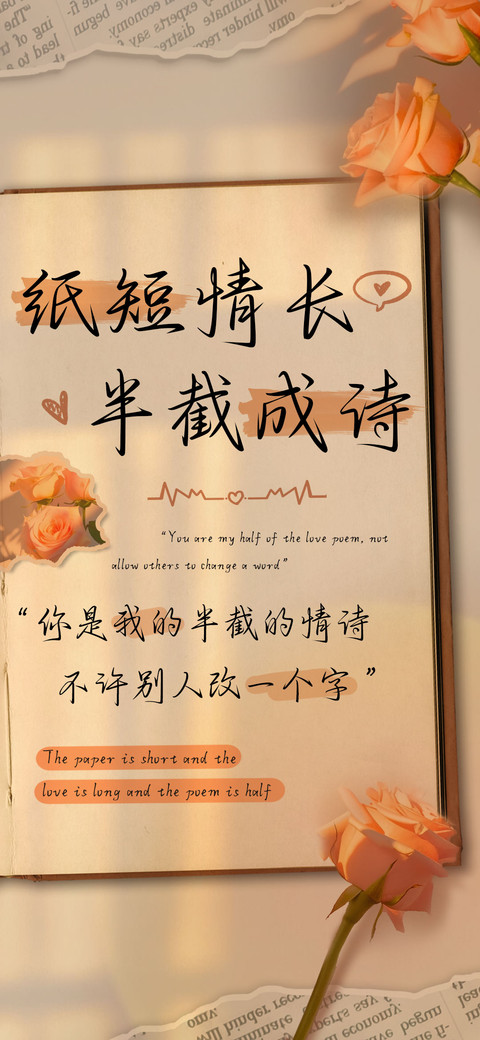 纸短情长
半截成诗
"You are my half of the love poem, not
allow others to change a word"
"你是我的半截的情诗
不许别人改一个字"
The paper is short and the
love is long and the poem is half